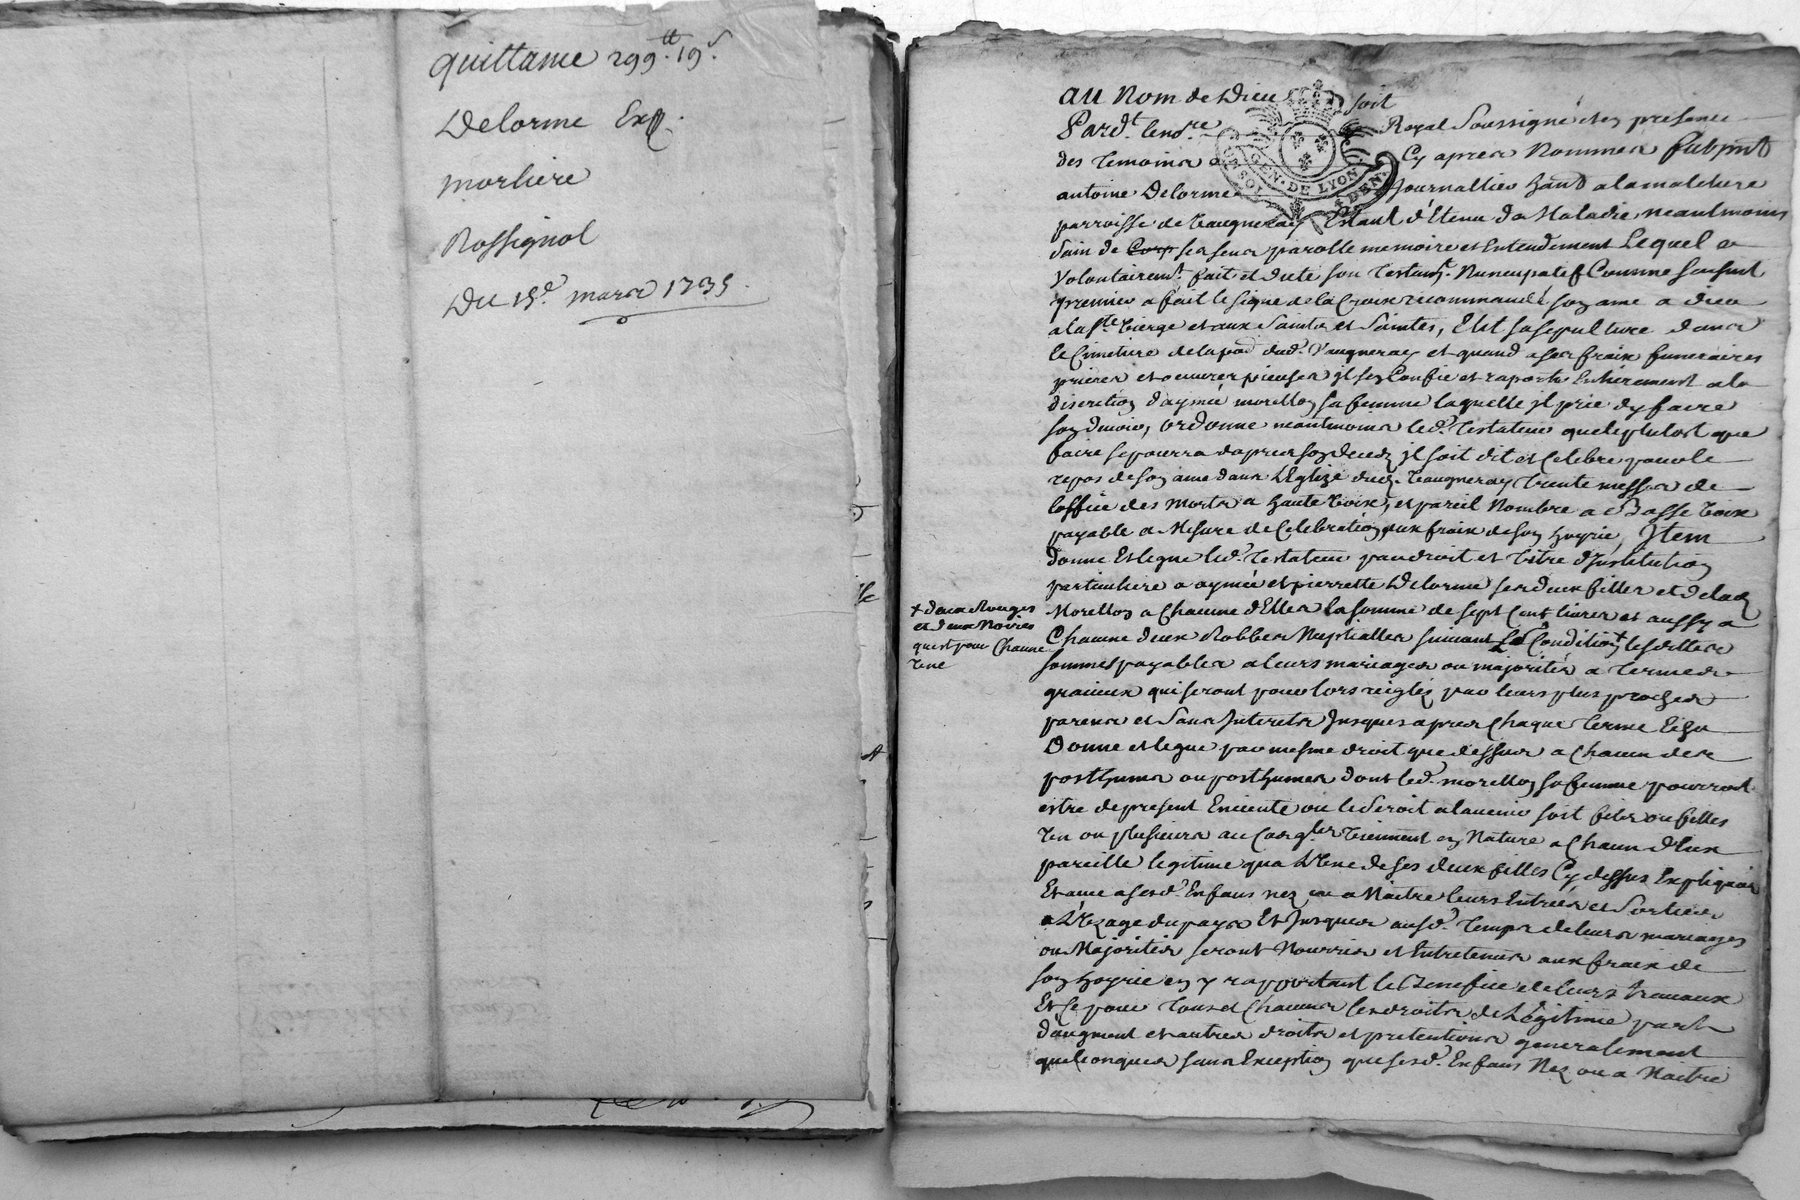 quittance 299.ᵗᵗ 19.ˢ
Delorme
morliere
Rossignol
Du 15.ᵉ mars 1735.
au Nom de Dieu soit
Pard.ᵗ le noʳᵉ Royal Soussigné et en presence
des temoins Cy apres Nommes fut pnt
antoine Delorme Journallier hant a la
parroisse de Vaugneray Estant d'Etenu da Maladie neantmoins
Sain de ses sens parolle memoire et Entendement Lequel a
Volontairemᵗ. fait et dicté son testamᵗ. Nuncupatif Comme sensuit
premier a fait le signe de la Croix recommandé son ame a dieu
a la sᵗᵉ Vierge et aux Saints et Saintes, Elit sa sepulture dans
le Cimetiere de la pad dud. Vaugneray et quand a ses fraix funeraires
prieres et oeuvres pieuses jl sen Confie et raporte Entierement a la
discretion d'aymée morellon sa femme laquelle jl prie dy faire
son devoir, ordonne neantmoins led. Testateur que le plutost que
faire se pourra dapres son deced jl soit dit et Celebre pour le
repos de son ame dans LEglize dud. Vaugneray trente messes de
loffice des Morts a haute Voix, et pareil Nombre a Basse Voix
payable a Mesure de Celebration aux fraix de son hoyrie, Jtem
donne Et legue led. Testateur par droit et titre d'Institution
particuliere a aymée et pierrette Delorme ses deux filles et de lad
Morellon a Chacune d'Elles la somme de sept Cent livres et aussy a
Chacune deux Robbes Nuptialles suivant La Condition lesdittes
sommes payables a leurs mariages ou majorités a termes
gracieux qui seront pour lors reiglés par leurs plus proches
parens et Sans Interets Jusques apres Chaque terme Eshu
Donne et legue par mesme droit que dessus a Chacun des
posthumes ou posthumes dont led. morellon sa femme pourroit
estre de present Enceinte ou le Seroit a lavenir soit fils ou filles
Un ou plusieurs au Cas qlˢ Viennent en Nature a Chacun d'Eux
pareille legitime qua L'Une de ses deux filles Cy dessus Expliquée
Et avec a sesd. Enfans nez ou a Naitre leurs Entrées et Sorties
a L'Uzage du pays Et Jusques ausd. temps de leurs mariages
ou Majorités seront Nourris et Entretenus aux fraix de
son hoyrie en y rapportant le Benefice de leurs travaux
Et Ce pour Tous et Chacuns les droits de Legitime part
daugment et autres droits et pretentions generalement
quelconques sans Exception que sesd. Enfans Nez ou a Naitre
+ deux Rouges
et deux Noires
quest pour Chacune
Une